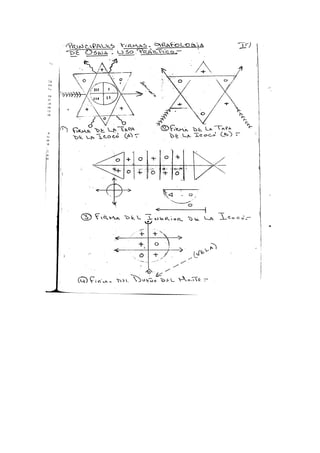 PRINCIPALES FIRMAS. GRAFOLOGIA
DE OSAIN. USO PRÁCTICO.-
① FIRMA DE LA TAPA
DE LA ICOCÓ (A):-
② FIRMA DE LA TAPA
DE LA ICOCÓ (B):-
③ FIRMA DEL INTERIOR DE LA ICOCÓ:-
(VELA)
④ FIRMA DEL DUEÑO DEL MONTE:-